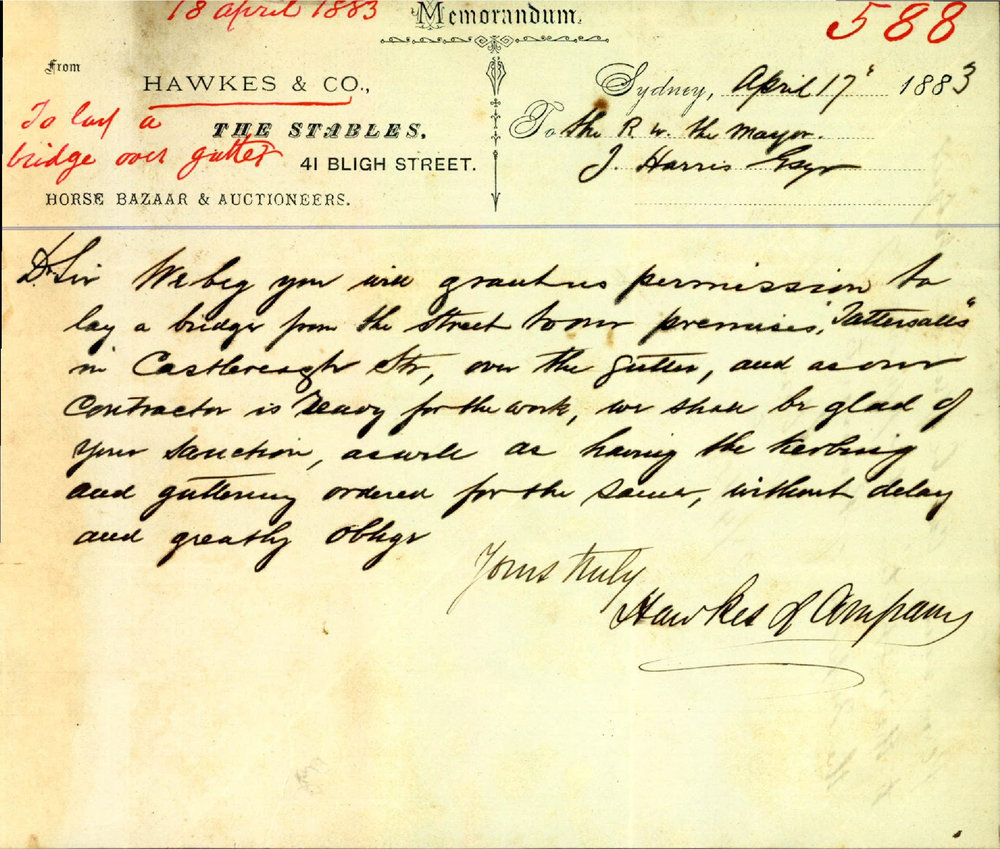 18 april 1883
Memorandum.
588
From
HAWKES & CO.,
To lay a
bridge over gutter
THE STABLES,
41 BLIGH STREET.
HORSE BAZAAR & AUCTIONEERS.
Sydney, April 17 1883
To the R. W. the Mayor.
J. Harris Esqr
Dr Sir We beg you will grant us permission to
lay a bridge from the street to our premises, "Tattersalls"
in Castlereagh Str, over the gutter, and as our
Contractor is ready for the work, we shall be glad of
your sanction, as well as having the kerbing
and guttering ordered for the same, without delay
and greatly oblige
Yours truly
Hawkes & Company